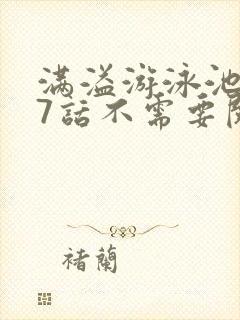 满溢游泳池
7話不需要
褚蘭